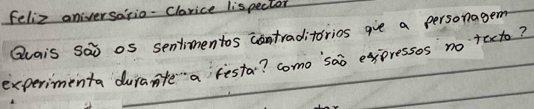 feliz aniversário - Clarice lispector
Quais são os sentimentos contraditórios que a personagem
experimenta durante a festa? como são expressos no texto?